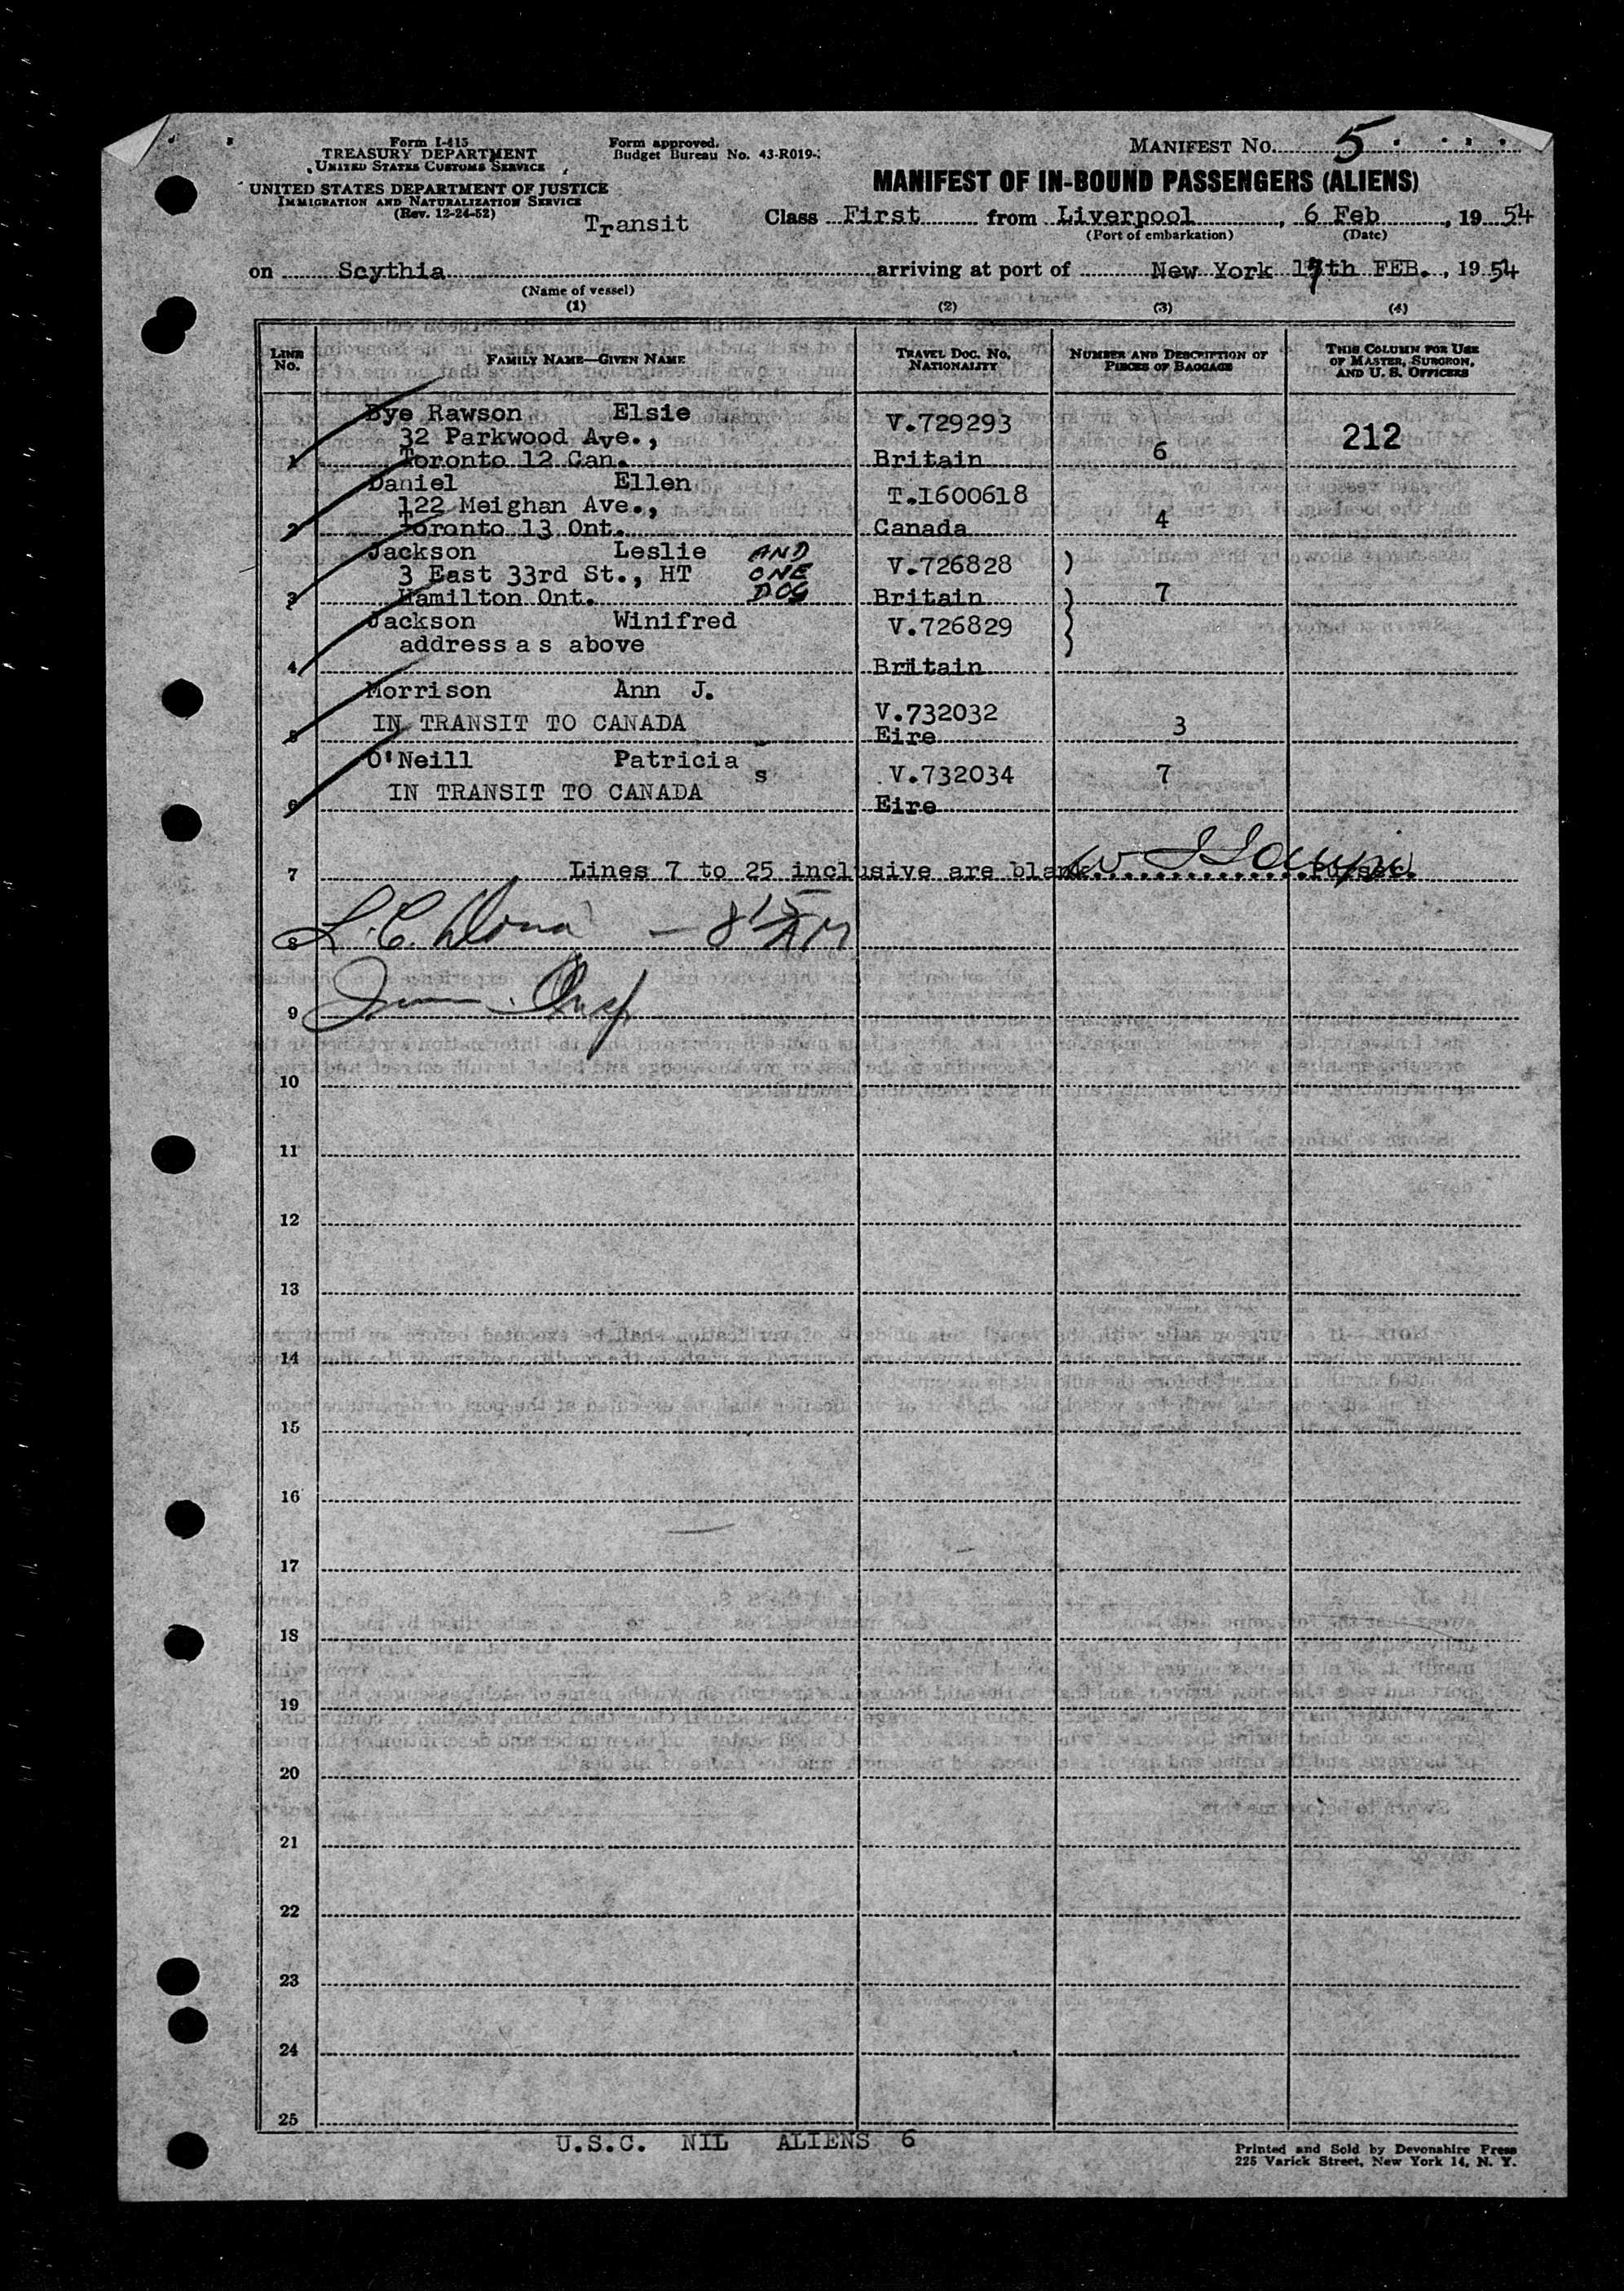 Form I-415
TREASURY DEPARTMENT
UNITED STATES CUSTOMS SERVICE
UNITED STATES DEPARTMENT OF JUSTICE
IMMIGRATION AND NATURALIZATION SERVICE
(Rev. 12-24-52)
Form approved.
Budget Bureau No. 43-R019-
MANIFEST No. 5
MANIFEST OF IN-BOUND PASSENGERS (ALIENS)
Transit Class First from Liverpool, 6 Feb, 1954
(Port of embarkation) (Date)
on Scythia arriving at port of New York 17th FEB., 1954
(Name of vessel)
(1) (2) (3) (4)
LINE No. FAMILY NAME—GIVEN NAME TRAVEL DOC. NO. NATIONALITY NUMBER AND DESCRIPTION OF PIECES OF BAGGAGE THIS COLUMN FOR USE OF MASTER, SURGEON, AND U. S. OFFICERS
Bye Rawson Elsie V.729293
32 Parkwood Ave., 212
1 Toronto 12 Can. Britain 6
Daniel Ellen T.1600618
122 Meighan Ave.,
2 Toronto 13 Ont. Canada 4
Jackson Leslie AND V.726828 )
3 East 33rd St., HT ONE
3 Hamilton Ont. DOG Britain ) 7
Jackson Winifred V.726829 )
address a s above
4 Britain
Morrison Ann J. V.732032
IN TRANSIT TO CANADA 3
5 Eire
O'Neill Patricia s V.732034 7
IN TRANSIT TO CANADA
6 Eire
7 Lines 7 to 25 inclusive are blank
8 L.C. - 8 15 AM
9 Imm. Insp
10
11
12
13
14
15
16
17
18
19
20
21
22
23
24
25
U.S.C. NIL ALIENS 6
Printed and Sold by Devonshire Press
225 Varick Street, New York 14, N. Y.